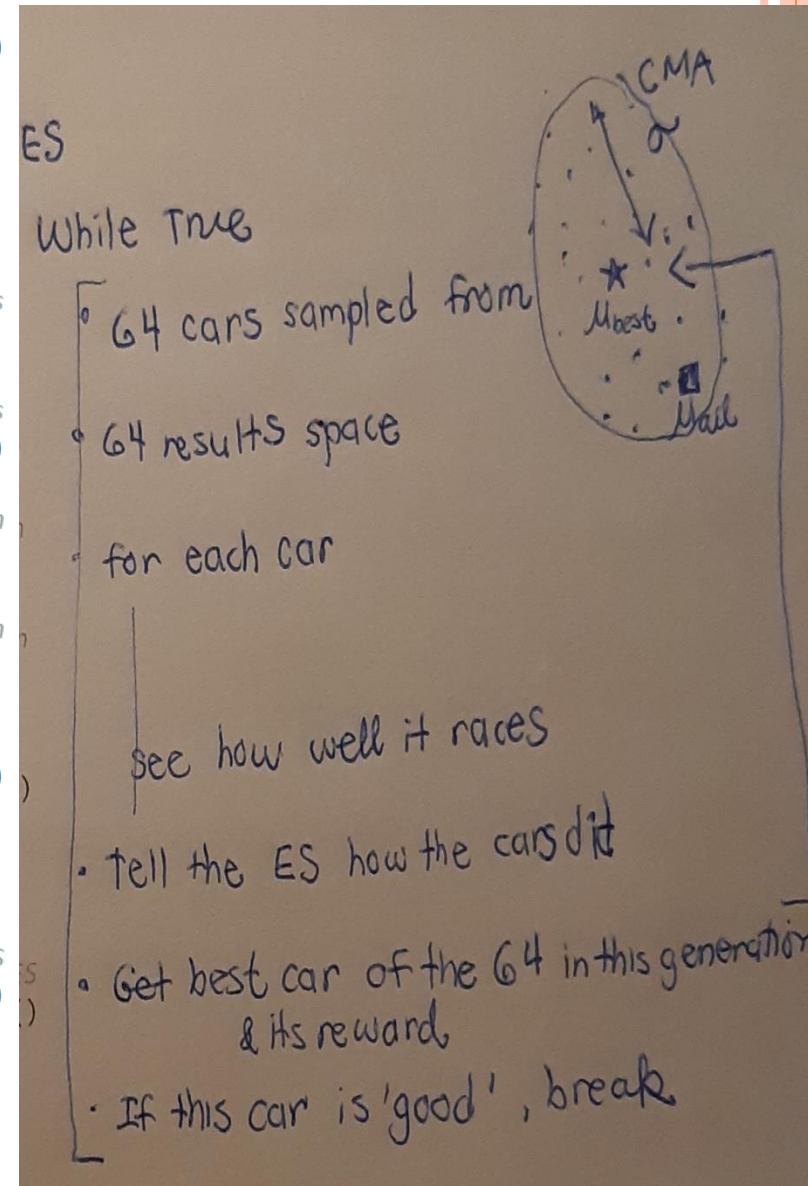 CMA
ES
σ
While True
64 cars sampled from
μbest
64 results space
for each car
see how well it races
Tell the ES how the cars did
Get best car of the 64 in this generation
& its reward
If this car is 'good', break